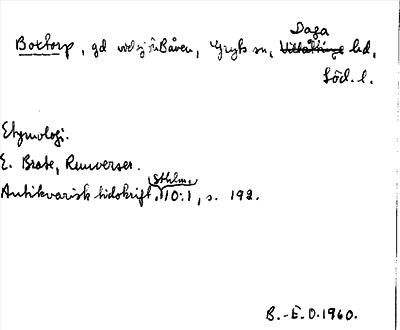 Daga
Boxtorp, gd vid sjön Båven, Gryts sn, Villåttinge hd,
Söd. l.
Etymologi.
E. Brate, Runverser.
Sthlm.
Antikvarisk tidskrift, 10:1, s. 192.
B.-E. O. 1960.